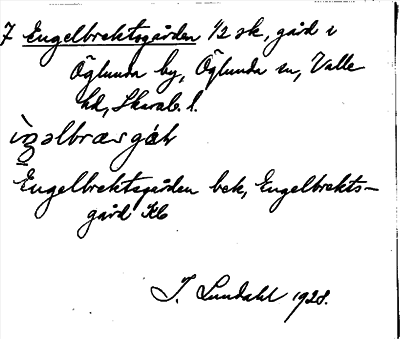 7 Engelbrektsgården 1/2 sk, gård i
Öglunda by, Öglunda sn, Valle
hd, Skarab. l.
Engelbrektsgården bek, Engelbrekts-
gård Kb
I. Lundahl 1928.